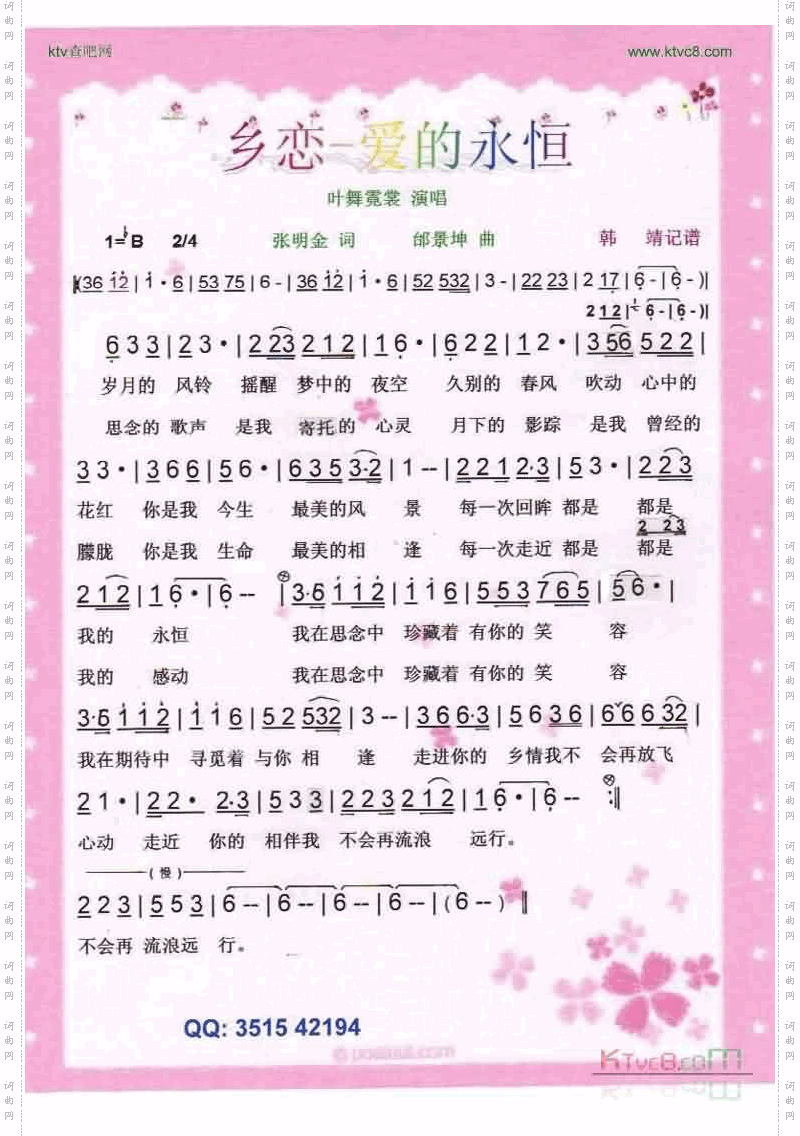 ktv查吧网 www.ktvc8.com
乡恋-爱的永恒
叶舞霓裳 演唱
1=♭B 2/4 张明金 词 邰景坤 曲 韩 靖记谱
(36 12 | 1· 6 | 53 75 | 6 - | 36 12 | 1· 6 | 52 532 | 3 - | 22 23 | 2 17 | 6 - | 6 - )|
2 12 | 6 - | 6 - )|
6 3 3 | 2 3· | 2 23 2 1 2 | 1 6· | 6 2 2 | 1 2· | 3 56 5 2 2 |
岁月的 风铃 摇醒 梦中的 夜空 久别的 春风 吹动 心中的
思念的 歌声 是我 寄托的 心灵 月下的 影踪 是我 曾经的
3 3· | 3 6 6 | 5 6· | 6 3 5 3·2 | 1 -- | 2 2 1 2·3 | 5 3· | 2 2 3
花红 你是我 今生 最美的风 景 每一次回眸 都是 都是
2 2 3
朦胧 你是我 生命 最美的相 逢 每一次走近 都是 都是
2 1 2 | 1 6· | 6 -- | 3·6 1 1 2 | 1 1 6 | 5 5 3 7 6 5 | 5 6· |
我的 永恒 我在思念中 珍藏着 有你的 笑 容
我的 感动 我在思念中 珍藏着 有你的 笑 容
3·6 1 1 2 | 1 1 6 | 5 2 532 | 3 -- | 3 6 6·3 | 5 6 3 6 | 6 6 6 32 |
我在期待中 寻觅着 与你 相 逢 走进你的 乡情我不 会再放飞
2 1· | 2 2· 2·3 | 5 3 3 | 2 2 3 2 1 2 | 1 6· | 6 -- :‖
心动 走近 你的 相伴我 不会再流浪 远行。
(慢)
2 2 3 | 5 5 3 | 6 -- | 6 -- | 6 -- | 6 -- | (6 -- ) ‖
不会再 流浪远 行。
QQ: 3515 42194
KTVC8.COM